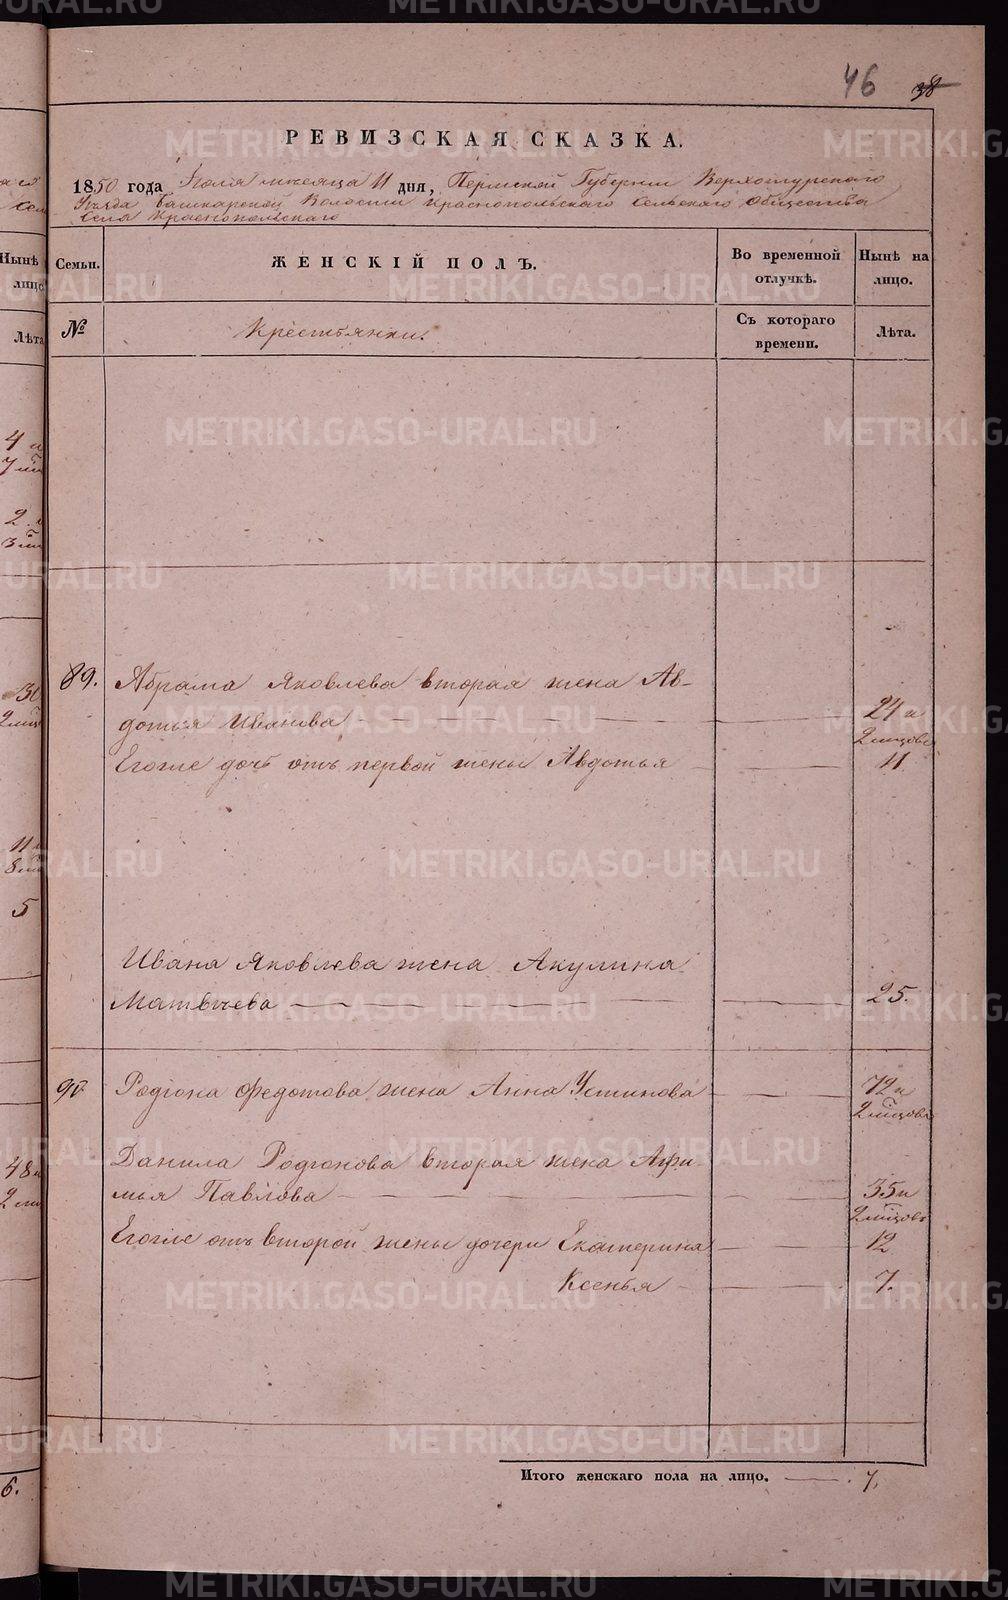 46 38
РЕВИЗСКАЯ СКАЗКА.
1850 года Іюля месяца 11 дня, Пермской Губерніи Верхотурскаго
Уезда Башкарской Волости Краснопольскаго Сельскаго Общества
Села Краснопольскаго
Семьи. ЖЕНСКІЙ ПОЛЪ. Во временной отлучкѣ. Нынѣ на лицо.
№ Крестьянки. Съ котораго времени. Лѣта.
89. Абрама Яковлева вторая жена Ав-
дотья Иванова 24 и 2 мѣсцовъ
Егоже дочь отъ первой жены Авдотья 11
Ивана Яковлева жена Акулина
Матвѣева 25.
90 Родіона Федотова жена Анна Устинова 72 и 2 мѣсцовъ
Данила Родіонова вторая жена Афи-
мья Павлова 35 и 2 мѣсцовъ
Егоже отъ второй жены дочери Екатерина 12
Ксенья 7.
Итого женскаго пола на лицо. 7.
Нынѣ
лицо
Лѣта
4 и
7
2
3
30
2
11
8
5
48 и
2
6.
METRIKI.GASO-URAL.RU